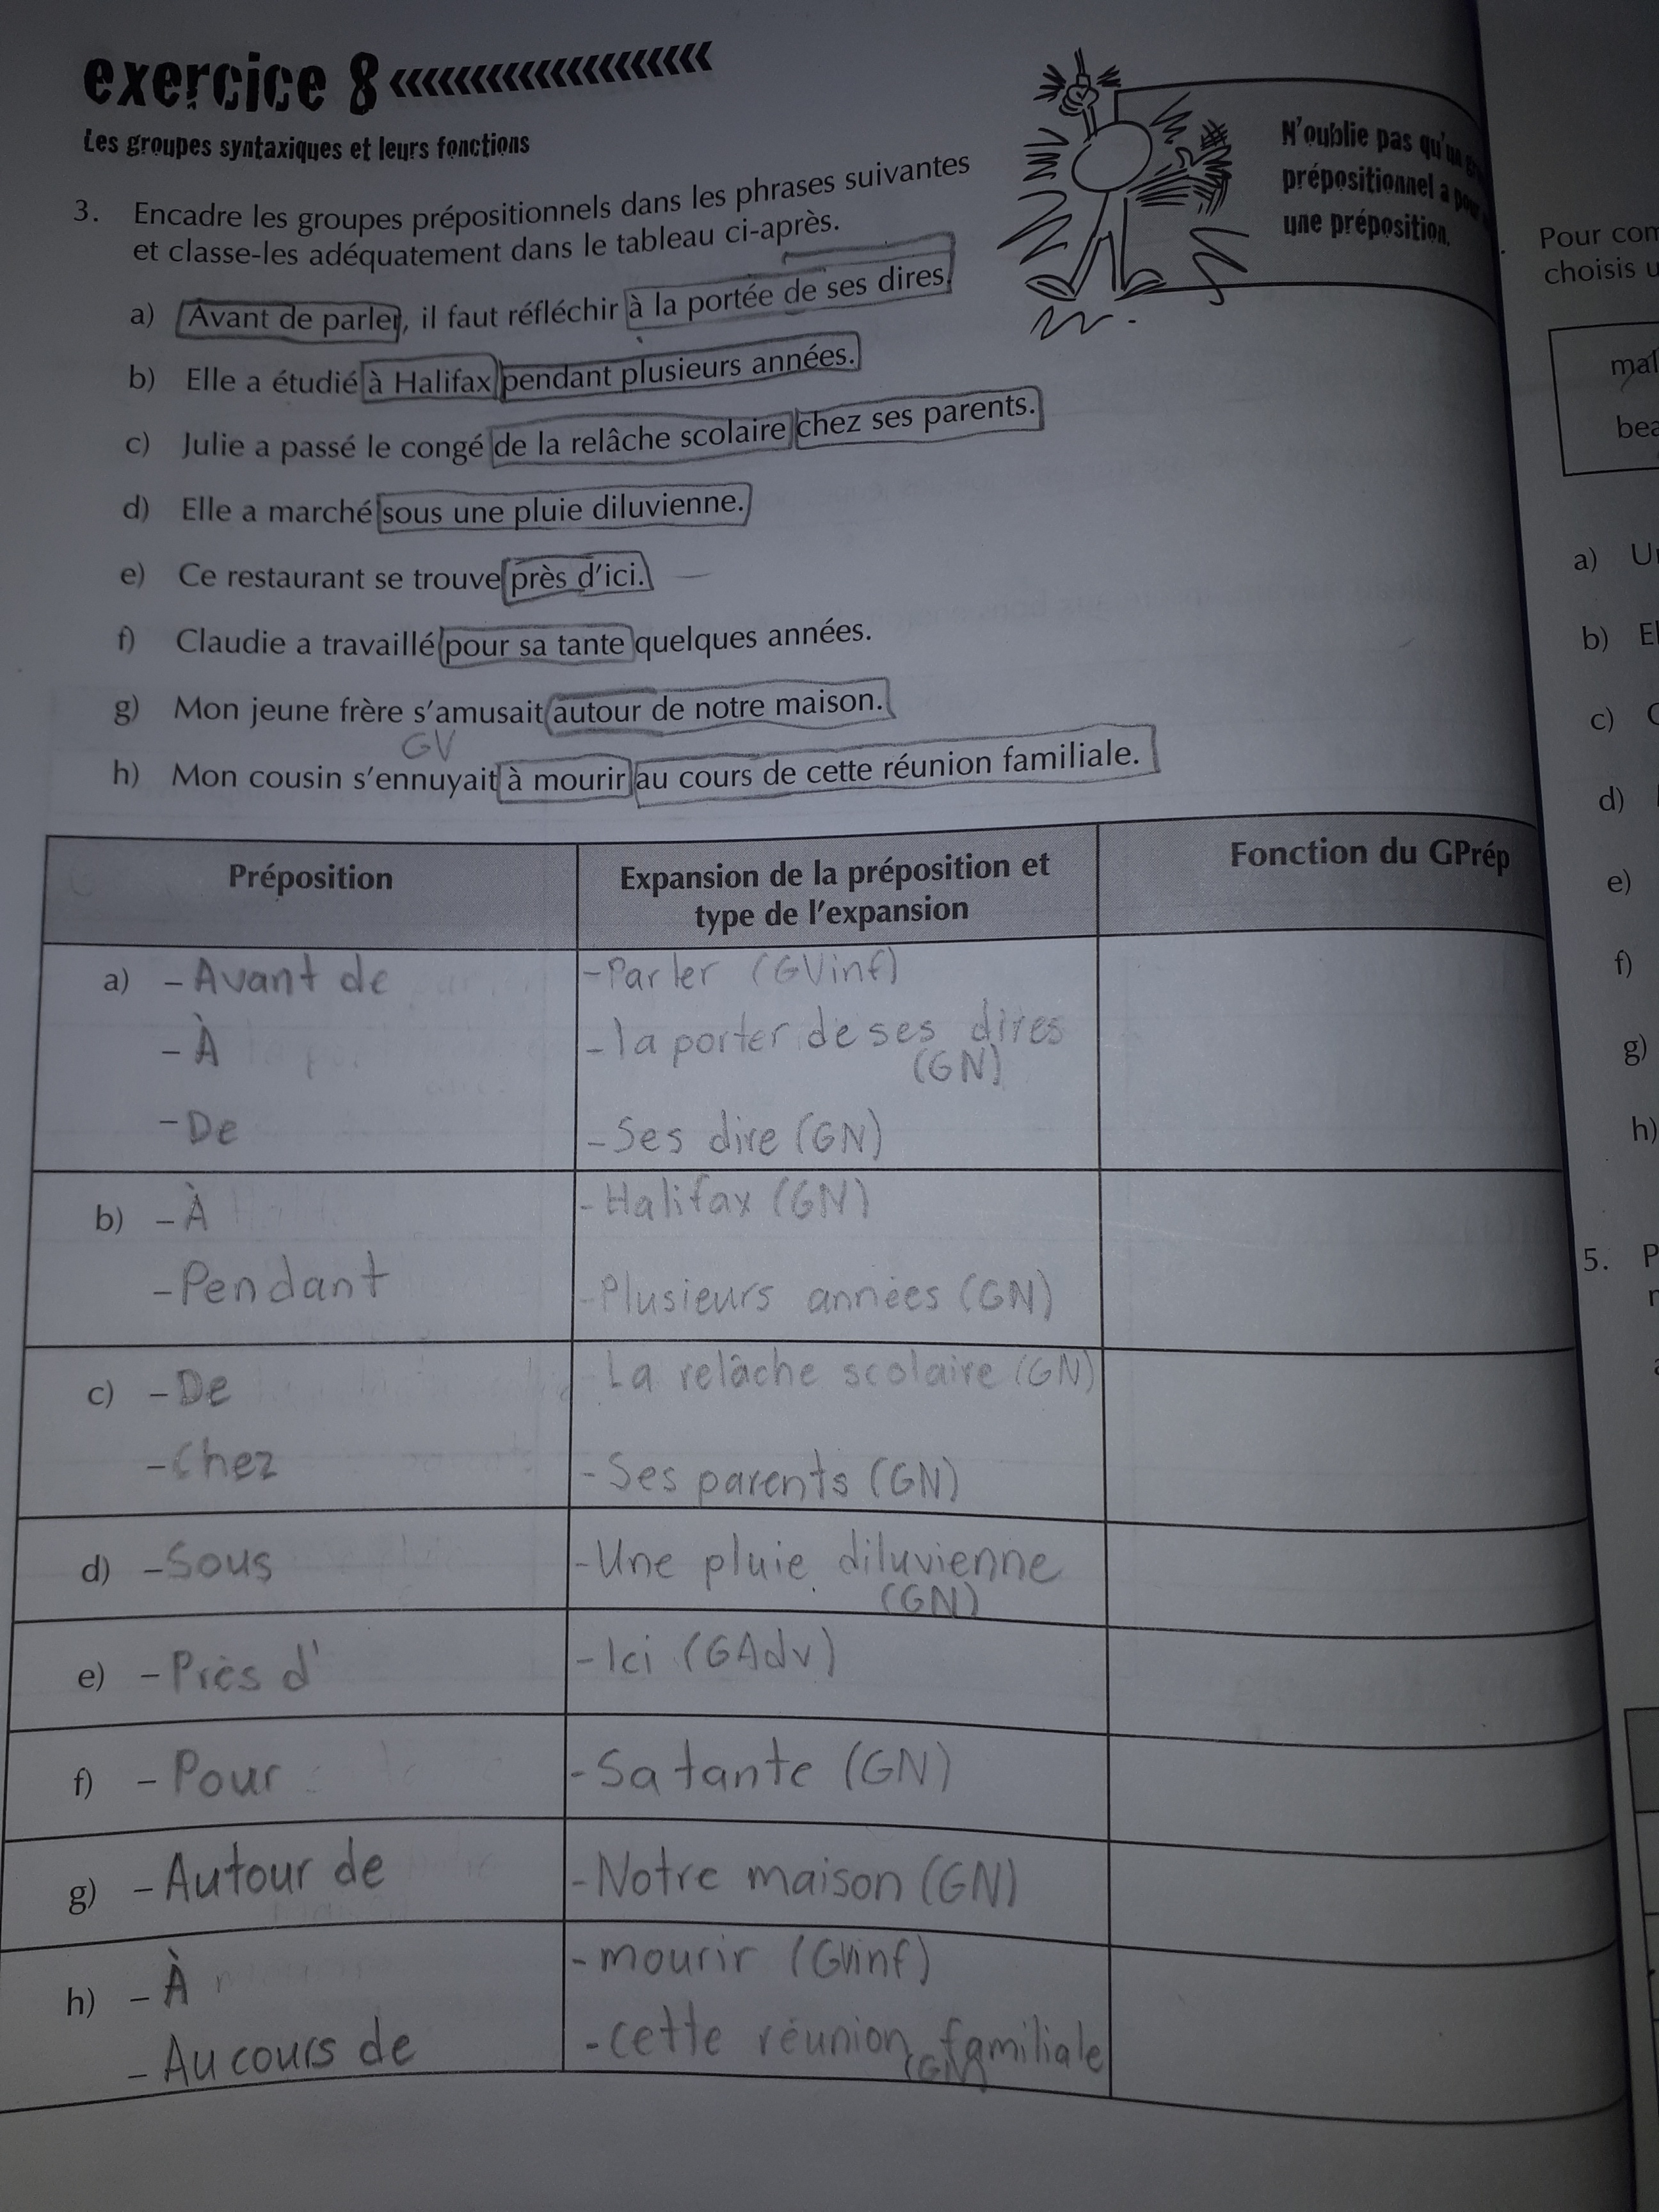 exercice 8
Les groupes syntaxiques et leurs fonctions
N'oublie pas qu'un
prépositionnel a pour
une préposition.
3. Encadre les groupes prépositionnels dans les phrases suivantes
et classe-les adéquatement dans le tableau ci-après.
a) Avant de parler, il faut réfléchir à la portée de ses dires.
b) Elle a étudié à Halifax pendant plusieurs années.
c) Julie a passé le congé de la relâche scolaire chez ses parents.
d) Elle a marché sous une pluie diluvienne.
e) Ce restaurant se trouve près d'ici.
f) Claudie a travaillé pour sa tante quelques années.
g) Mon jeune frère s'amusait autour de notre maison.
GV
h) Mon cousin s'ennuyait à mourir au cours de cette réunion familiale.
Préposition
Expansion de la préposition et
type de l'expansion
Fonction du GPrép
a) - Avant de
- Parler (GVinf)
- À
- la porter de ses dires
(GN)
- De
- Ses dire (GN)
b) - À
- Halifax (GN)
- Pendant
- Plusieurs années (GN)
c) - De
La relâche scolaire (GN)
- Chez
- Ses parents (GN)
d) - Sous
- Une pluie diluvienne
(GN)
e) - Près d'
- Ici (GAdv)
f) - Pour
- Sa tante (GN)
g) - Autour de
- Notre maison (GN)
h) - À
- mourir (GVinf)
- Au cours de
- cette réunion familiale
(GN)
Pour com
choisis u
mal
bea
a) Un
b) El
c)
d)
e)
f)
g)
h)
5. P